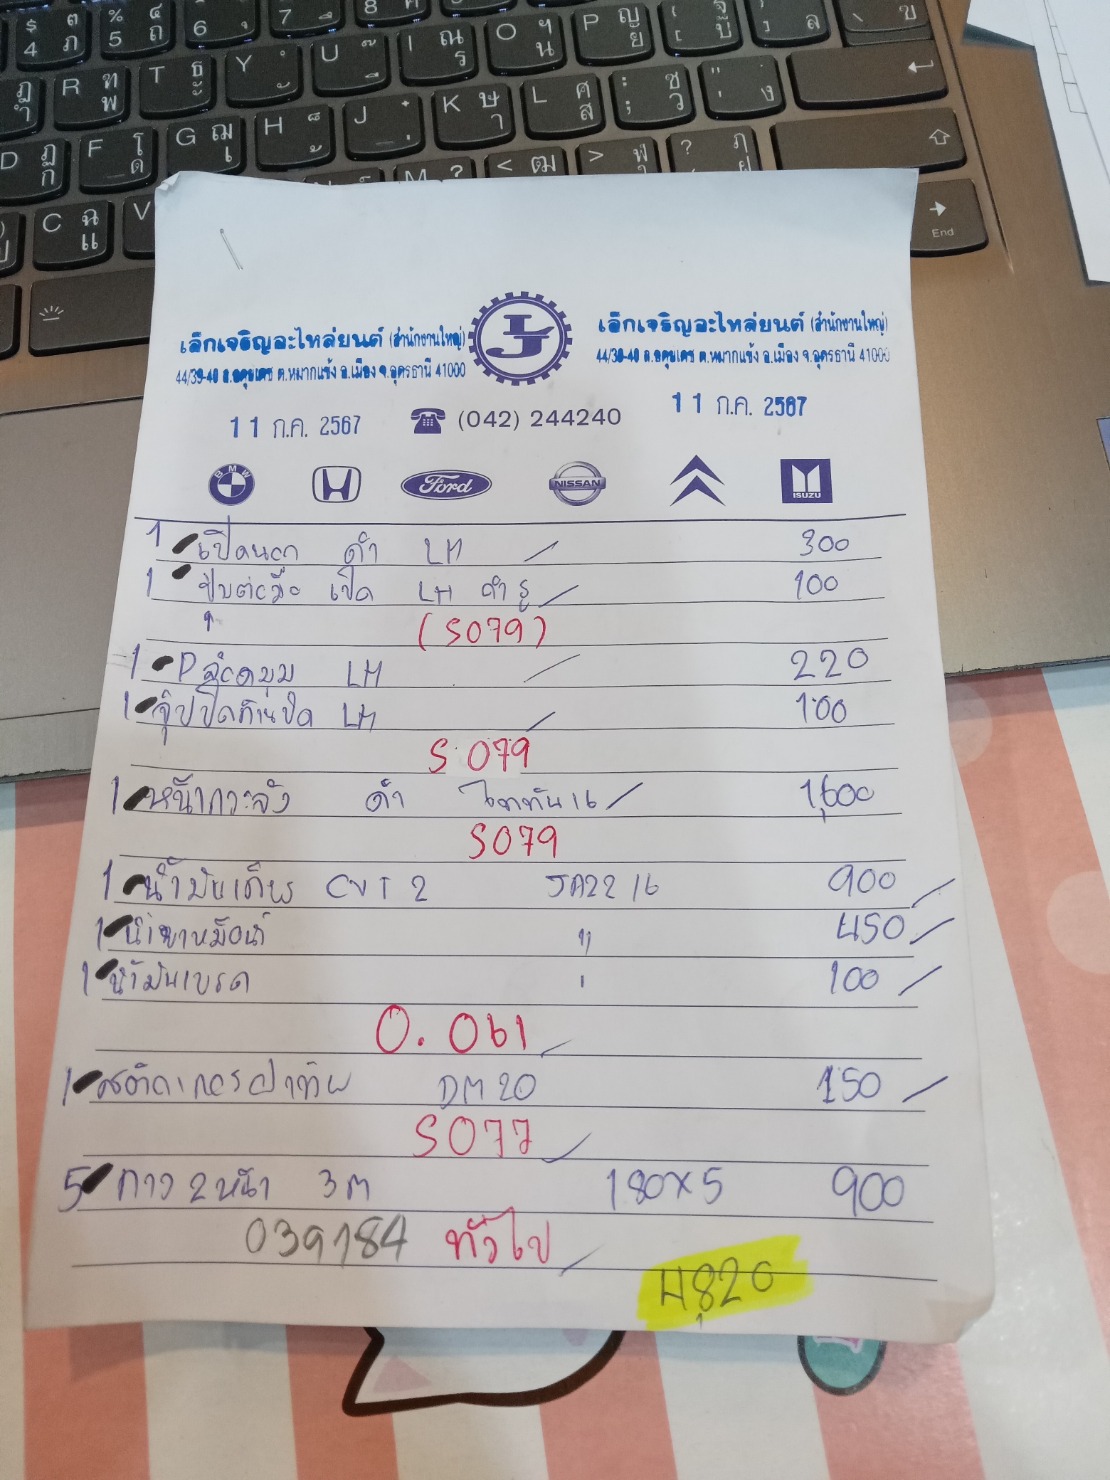 เล็กเจริญอะไหล่ยนต์ (สำนักงานใหญ่)
44/39-40 ถ.อดุลเดช ต.หมากแข้ง อ.เมือง จ.อุดรธานี 41000
เล็กเจริญอะไหล่ยนต์ (สำนักงานใหญ่)
44/39-40 ถ.อดุลเดช ต.หมากแข้ง อ.เมือง จ.อุดรธานี 41000
11 ก.ค. 2567
(042) 244240
11 ก.ค. 2567
BMW Ford NISSAN ISUZU
1 เปิดนอก ดำ LH 300
1 LH ดำ 100
(S079)
1 LH 220
1 LH 100
S079
1 หน้ากระจัง ดำ 16 1,600
S079
1 น้ำมันเกียร CVT 2 JA22 16 900
1 450
1 น้ำมันเบรค 100
O. 061
1 DM 20 150
S077
5 กาว 2 หน้า 3m 180x5 900
039184 ทั่วไป
4,820